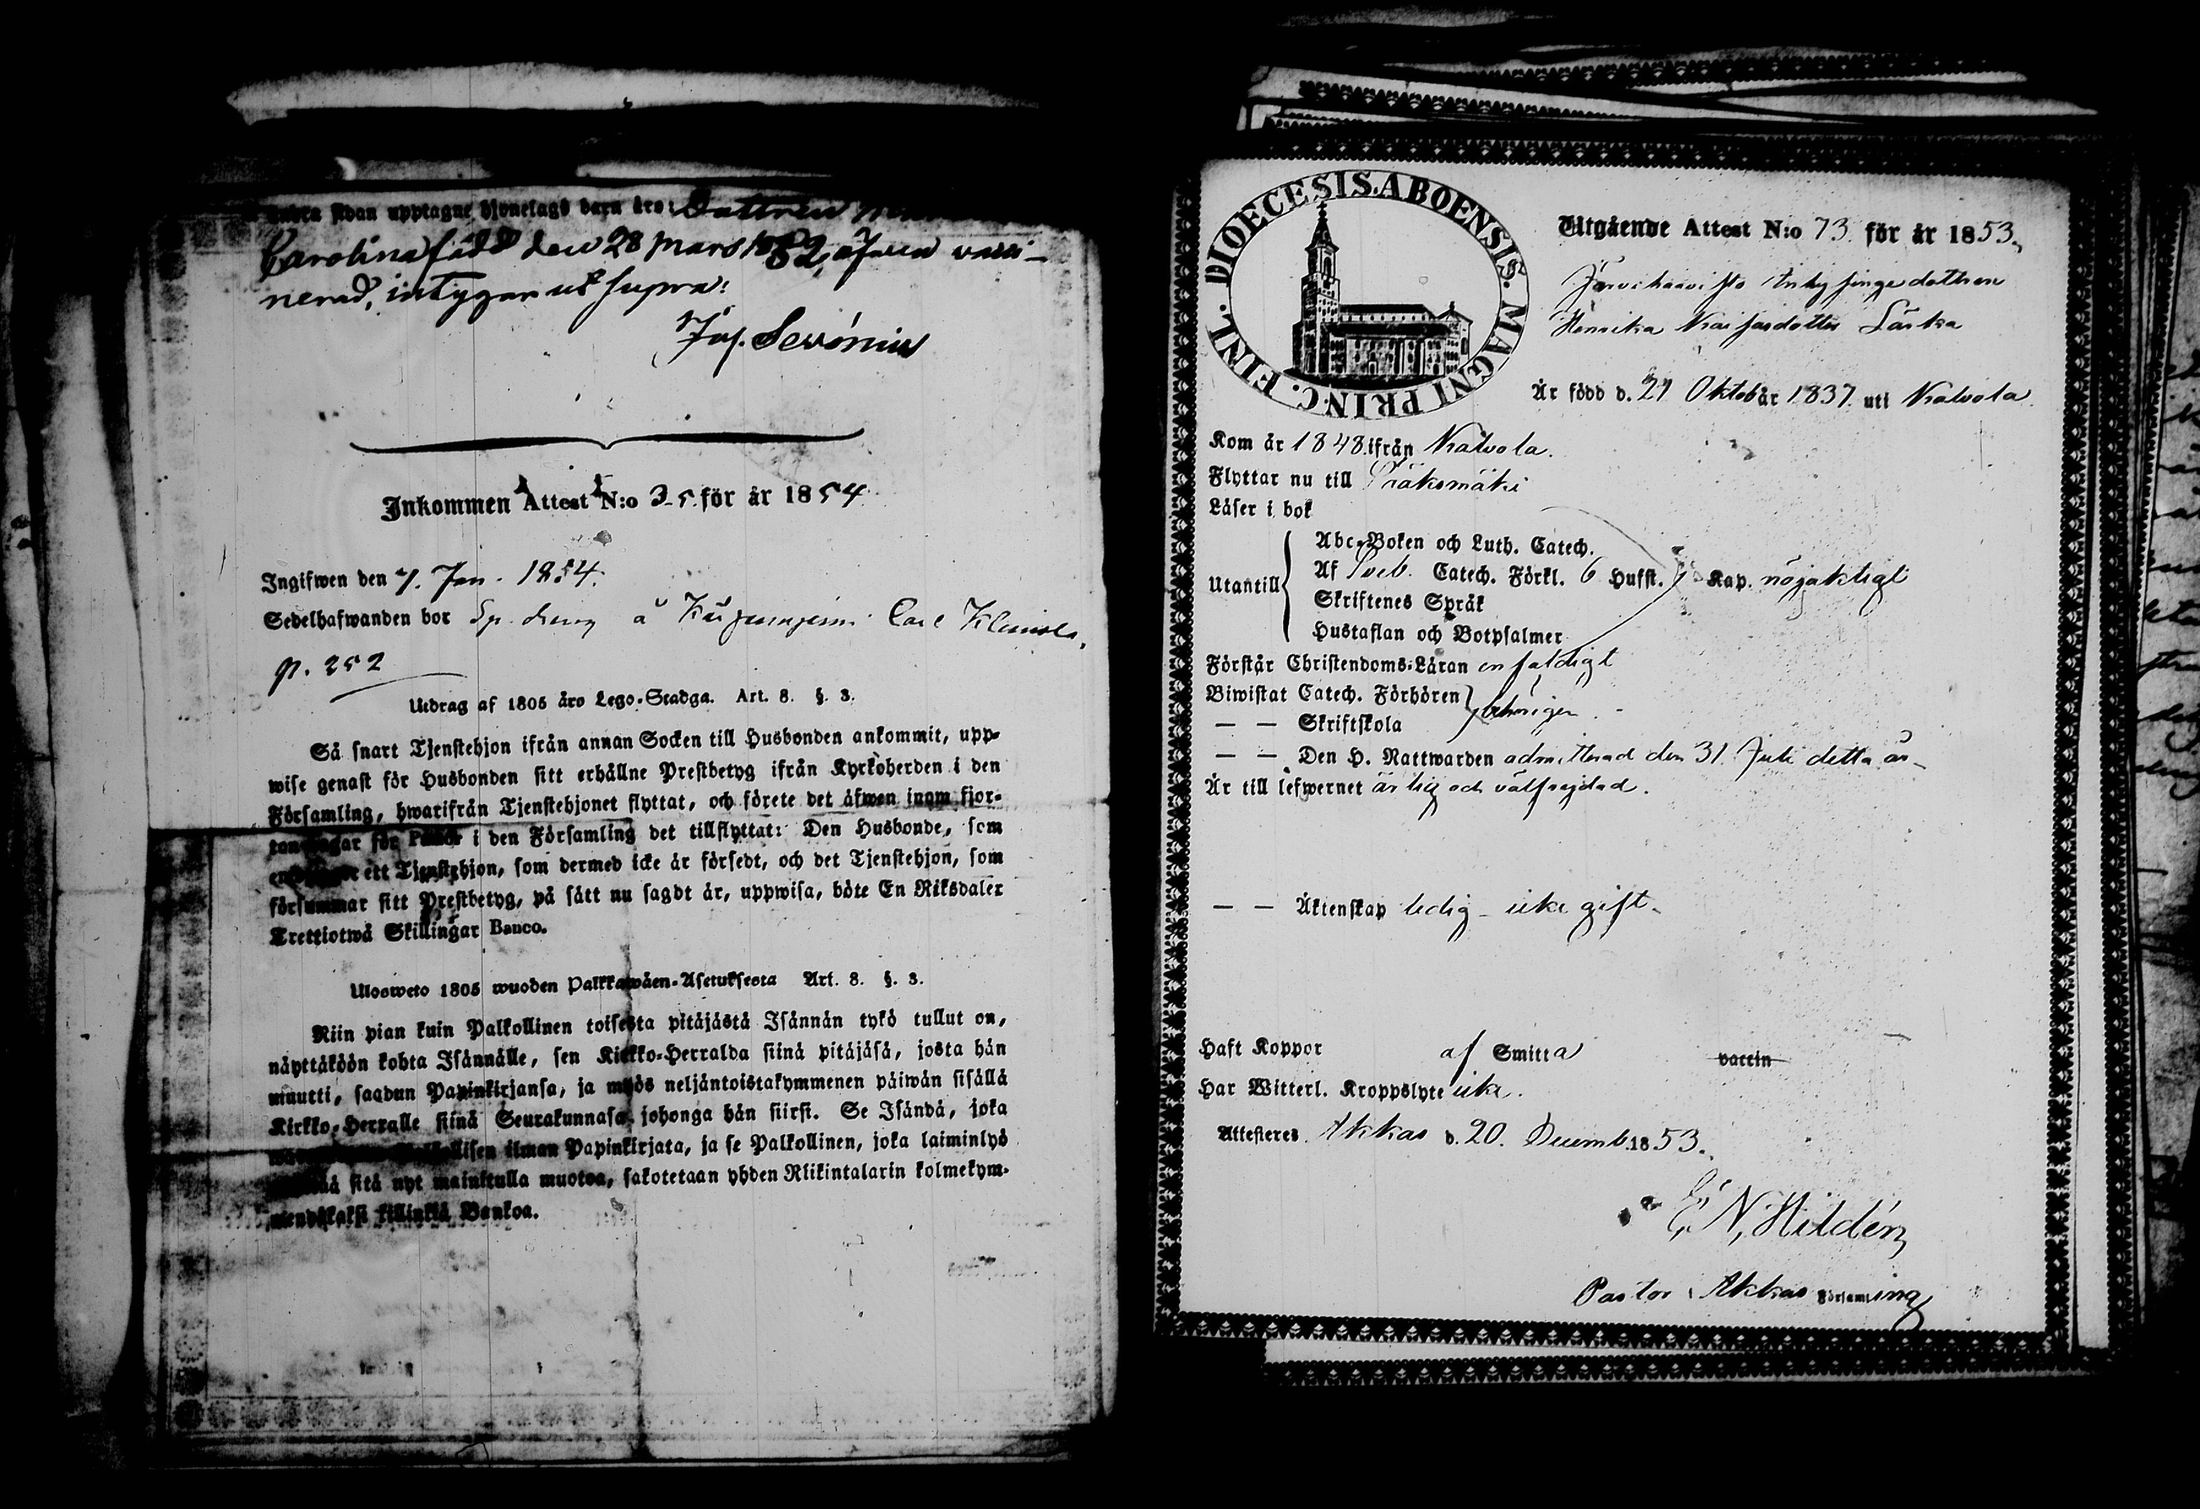 sidan upptagne hjonelags barn äro: Dottren
Carolina född den 28 Mars 1852, äfven vacci-
nerad, intygar ut supra:
Jos. Serónius
Inkommen Attest N:o 35. för år 1854.
Ingifwen den 7. Jan. 1854.
Sedelhafwanden bor Sp. dreng å Carl
p. 252
Utdrag af 1805 års Lego-Stadga. Art. 8. §. 3.
Så snart Tjenstehjon ifrån annan Socken till Husbonden ankommit, upp-
wise genast för Husbonden sitt erhållne Prestbetyg ifrån Kyrkoherden i den
Församling, hwarifrån Tjenstehjonet flyttat, och förete det äfwen inom fjor-
för i den Församling det tillflyttat: Den Husbonde, som
ett Tjenstehjon, som dermed icke är försedt, och det Tjenstehjon, som
försummar sitt Prestbetyg, på sätt nu sagdt är, uppwisa, böte En Riksdaler
Trettiotwå Skillingar Banco.
Ulosweto 1805 wuoden Palkkawäen-Asetuksesta Art. 8. §. 3.
Niin pian kuin Palkollinen toisesta pitäjästä Isännän tykö tullut on,
näyttäköön kohta Isännälle, sen Kirkko-Herralda siinä pitäjäsä, josta hän
muutti, saadun Papinkirjansa, ja myös neljäntoistakymmenen päiwän sisällä
Kirkko-Herralle siinä Seurakunnasa, johonga hän siirsi. Se Isändä, joka
ilman Papinkirjata, ja se Palkollinen, joka laiminlyö
sitä nyt mainitulla muotoa, sakotetaan yhden Riikintalarin kolmekym-
mendäkaksi killinkiä Bankoa.
DIOECESIS.ABOENSIS.MAGNI PRIN.C.FINL.
Utgående Attest N:o 73. för år 1853.
Inhysinge dottren
Henrika
Är född d. 27 Oktob år 1837. uti Kalvola
Kom år 1848. ifrån Kalvola.
Flyttar nu till Sääksmäki
Läser i bok
Utantill
Abc-Boken och Luth. Catech.
Af Sveb. Catech. Förkl. 6 Hufst. Kap. nöjaktigt
Skriftenes Språk
Hustaflan och Botpsalmer
Förstår Christendoms-Läran enfaldigt
Biwistat Catech. Förhören
— — Skriftskola
behörigen
— — Den H. Nattwarden admitterad den 31 Juli detta år -
Är till lefwernet ärlig och välfrejdad.
— — Äktenskap ledig - icke gift -
Haft Koppor af Smitta vaccin
Har Witterl. Kroppslyte icke.
Attesteres Akkas d. 20. Decemb. 1853.
N, Hildén
Pastor i Akkas Församling